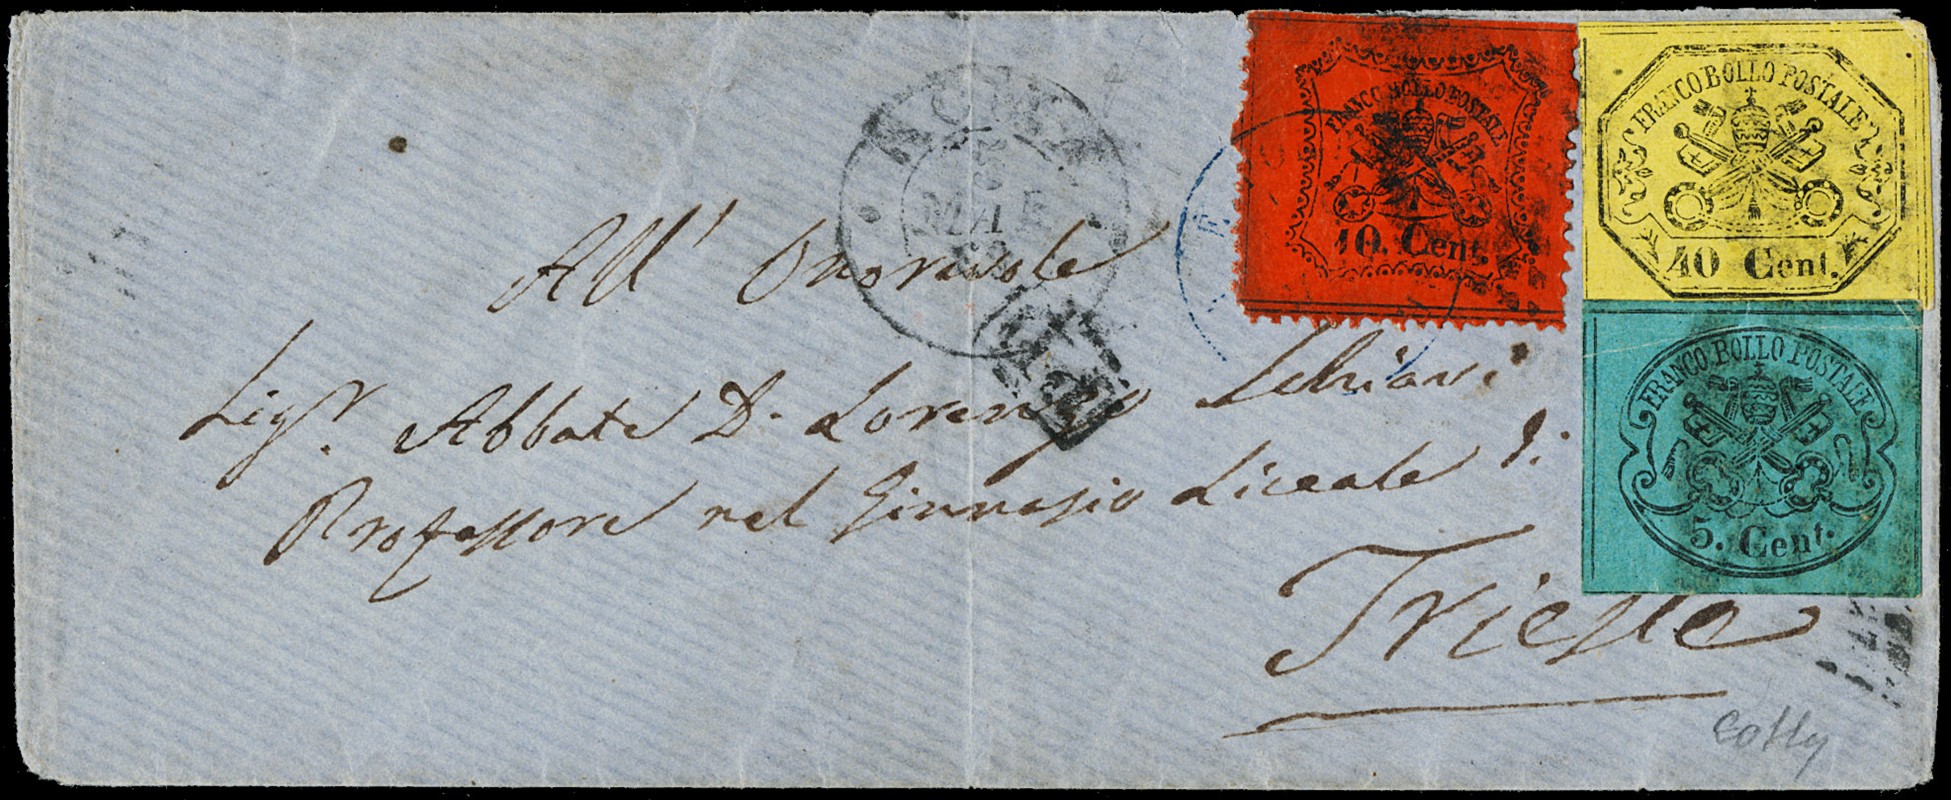 ROMA
5
MAR
68
P.D.
FRANCO BOLLO POSTALE
10. Cent.
FRANCO BOLLO POSTALE
40 Cent.
FRANCO BOLLO POSTALE
5. Cent.
All' Onorevole
Sigr. Abbate D. Lorenzo Schiavi
Professore nel Ginnasio Liceale di
Trieste